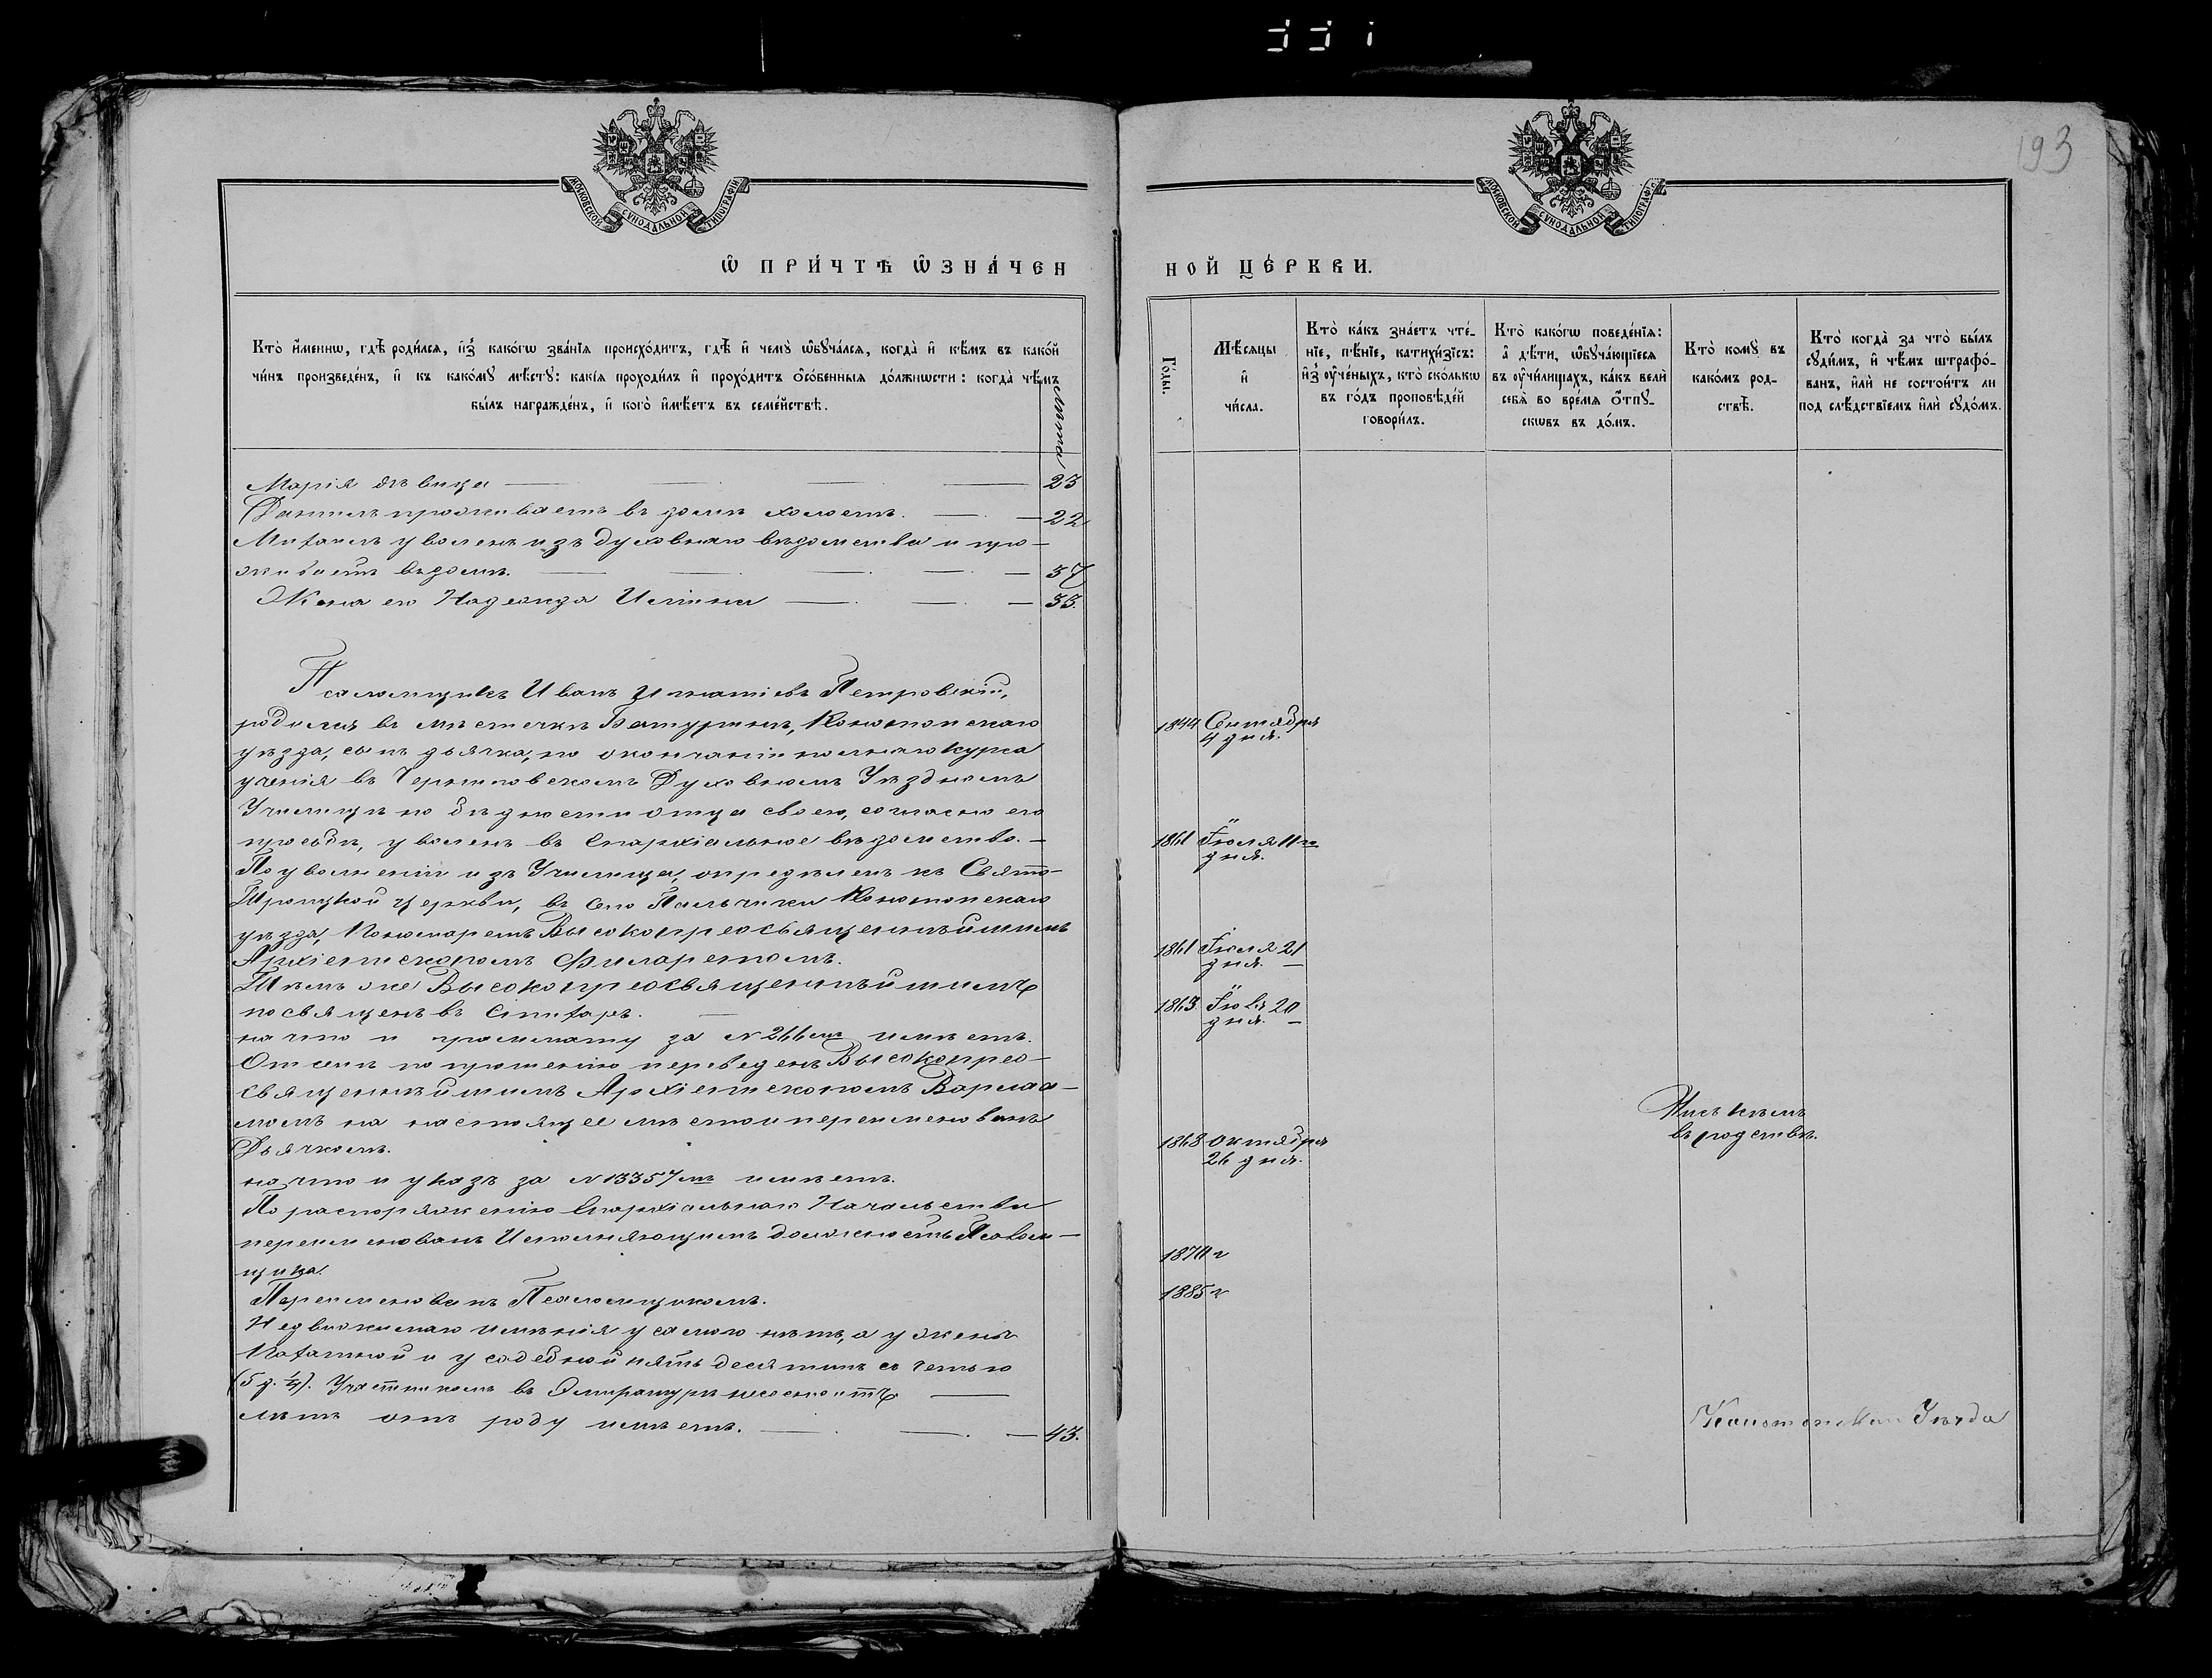 193
МОСКОВСКОЙ СѴНОДАЛЬНОЙ ТИПОГРАФІИ
МОСКОВСКОЙ СѴНОДАЛЬНОЙ ТИПОГРАФІИ
Ѡ ПРИ́ЧТѢ ѠЗНА́ЧЕН
НОЙ ЦЕ́РКВИ.
Кто̀ и҆́меннѡ, гдѣ̀ роди́лся, и҆з̾ како́гѡ зва́нїя происхо́дитъ, гдѣ̀ и҆ чемꙋ̀ ѡ҆бꙋча́лся, когда̀ и҆ кѣ́мъ въ како́й
чи́нъ произведе́нъ, и҆ къ како́мꙋ мѣ́стꙋ: какі́я проходи́лъ и҆ прохо́дитъ ѻ҆со́бенныя до́лжнѡсти: когда̀ чѣ́мъ
бы́лъ награжде́нъ, и҆ кого̀ и҆мѣ́етъ въ семе́йствѣ.
Лѣта
Го́ды.
Мѣ́сяцы
и҆
чи́сла.
Кто̀ ка́къ зна́етъ чте́-
нїе, пѣ́нїе, катихи́зїсъ:
и҆з̾ ᲂу҆че́ныхъ, кто̀ ско́лькѡ
въ го́дъ проповѣ́дей
говори́лъ.
Кто̀ како́гѡ поведе́нїя:
а҆ дѣ́ти, ѡ҆бꙋча́ющїеся
въ ᲂу҆чи́лищахъ, ка́къ велѝ
себя̀ во вре́мя ѻ҆́тпꙋ-
сковъ въ до́мъ.
Кто̀ комꙋ̀ въ
како́мъ род-
ствѣ̀.
Кто̀ когда̀ за что̀ бы́лъ
сꙋди́мъ, и҆ чѣ́мъ штрафо́-
ванъ, и҆лѝ не состои́тъ ли
под слѣ́дствїемъ и҆лѝ сꙋдо́мъ.
Марія дѣвица 23
Даніилъ проживаетъ въ домѣ холостъ. 22
Михаилъ уволенъ изъ духовнаго вѣдомства и про-
живаетъ въ домѣ. 37
Жена его Надежда 33.
Псаломщикъ Иванъ Игнатіевъ Петровскій,
родился въ мѣстечкѣ Батуринѣ, Конотопскаго
уѣзда, сынъ дьячка, по окончаніи полнаго курса
ученія въ Черниговскомъ Духовномъ Уѣздномъ
Училищѣ по бѣдности отца своего, согласно его
просьбѣ, уволенъ въ Епархіальное вѣдомство. —
По увольненіи изъ Училища, опредѣленъ къ Свято-
Троицкой церкви, въ село Пальчики Конотопскаго
уѣзда, Пономаремъ Высокопреосвященнѣйшимъ
Архіепископомъ Филаретомъ.
Тѣмъ же Высокопреосвященнѣйшимъ
посвященъ въ Стихарь.
на что и граммату за № 266мъ имѣетъ.
Отселѣ по прошенію переведенъ Высокопрео-
священнѣйшимъ Архіепископомъ Варлаа-
момъ на настоящее мѣсто и переименованъ
Дьячкомъ.
на что и указъ за № 13357мъ имѣетъ.
По распоряженію Епархіальнаго Начальства
переименованъ Исполняющимъ должность Псалом-
щика.
Переименованъ Псаломщикомъ.
Недвижимаго имѣнія у самого нѣтъ, а у жены
Пахатной и усадебной пять десятинъ съ четью
(5 д. ¼). Участникомъ въ Эмеритурѣ не состоитъ
лѣтъ отъ роду имѣетъ. 43.
1844 Сентября
4 дня.
1861 Іюля 11го
дня.
1861 Іюля 21
дня. —
1863 20
дня. —
1868 Октября
26 дня.
1870 г
1885 г
Ни съ кѣмъ
въ родствѣ.
Конотопскаго Уѣзда